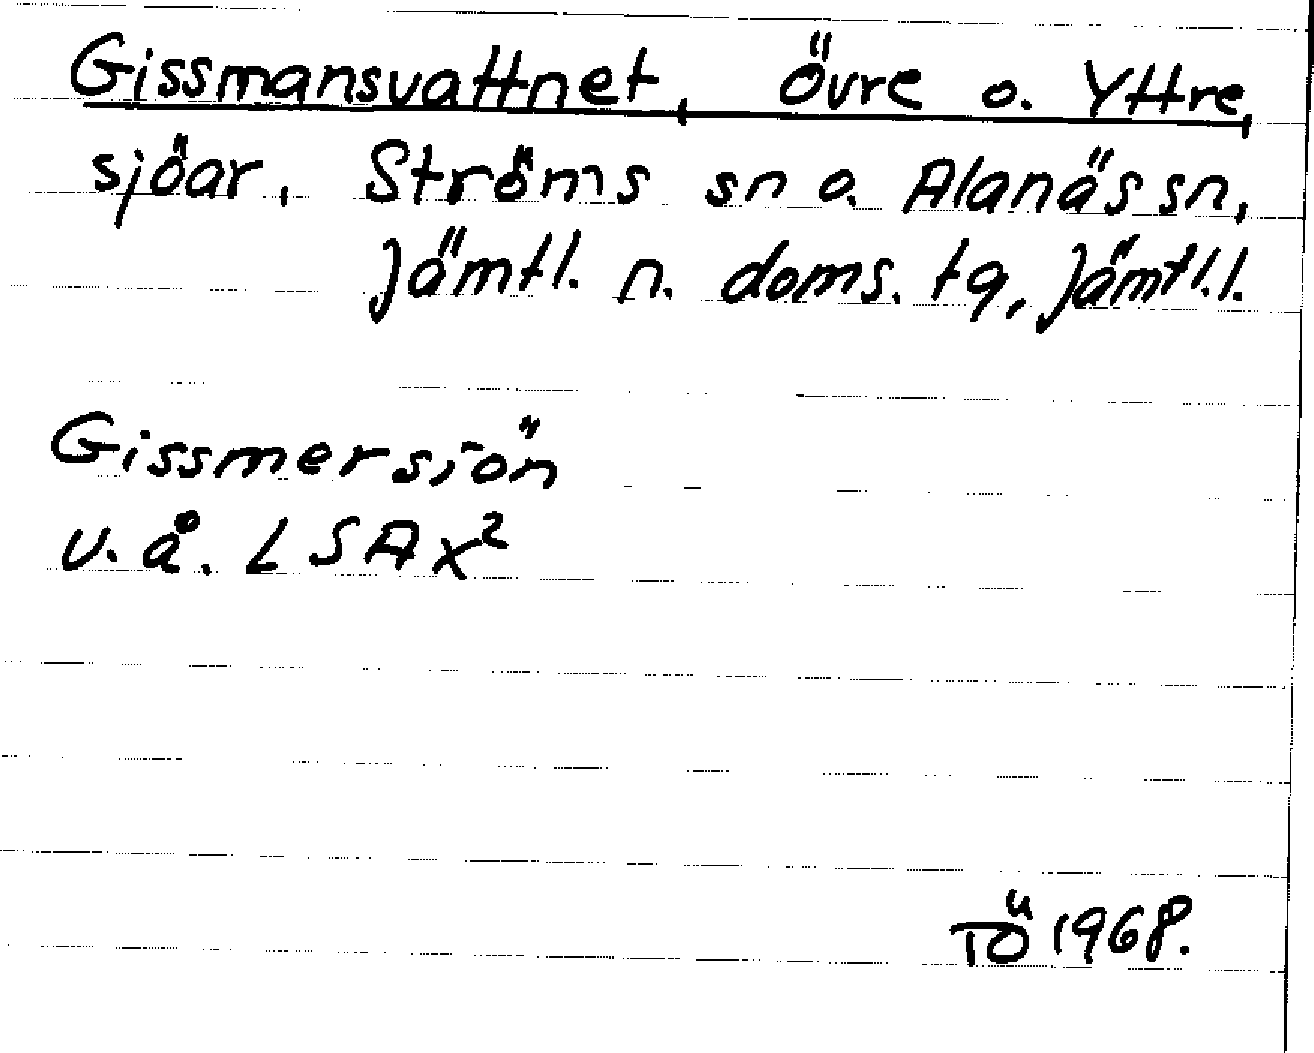 Gissmansvattnet, Övre o. Yttre,
sjöar, Ströms sn o. Alanäs sn,
Jämtl. n. doms. tg, Jämtl.l.
Gissmersjön
u.å. LSA X²
TÖ 1968.